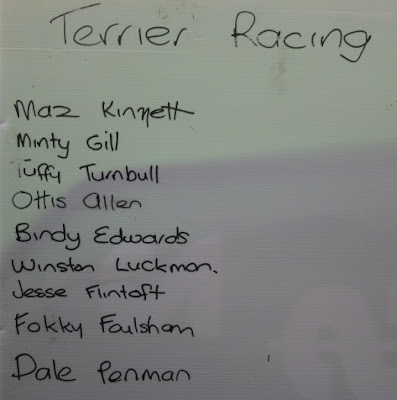 Terrier Racing
Maz Kinnett
Minty Gill
Tuffy Turnbull
Ottis Allen
Bindy Edwards
Winston Luckman.
Jesse Flintoft
Fokky Foulsham
Dale Penman